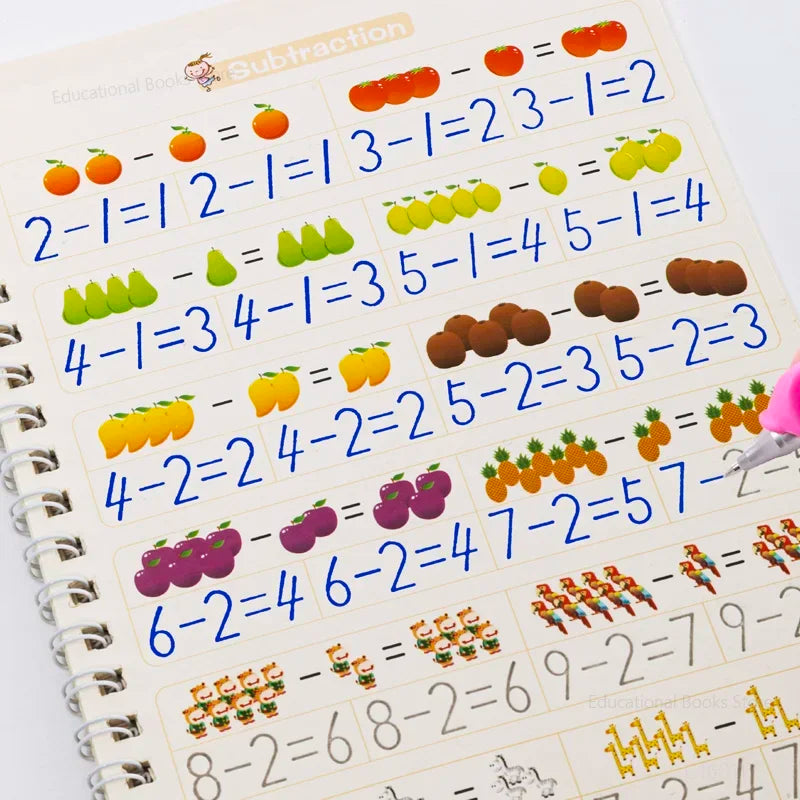 Subtraction
Educational Books Store
− = − =
2−1=1 2−1=1 3−1=2 3−1=2
− = − =
4−1=3 4−1=3 5−1=4 5−1=4
− = − =
4−2=2 4−2=2 5−2=3 5−2=3
− = − =
6−2=4 6−2=4 7−2=5 7−2=
− = − =
8−2=6 8−2=6 9−2=7 9−2
Educational Books Store
= −
−2=4 7